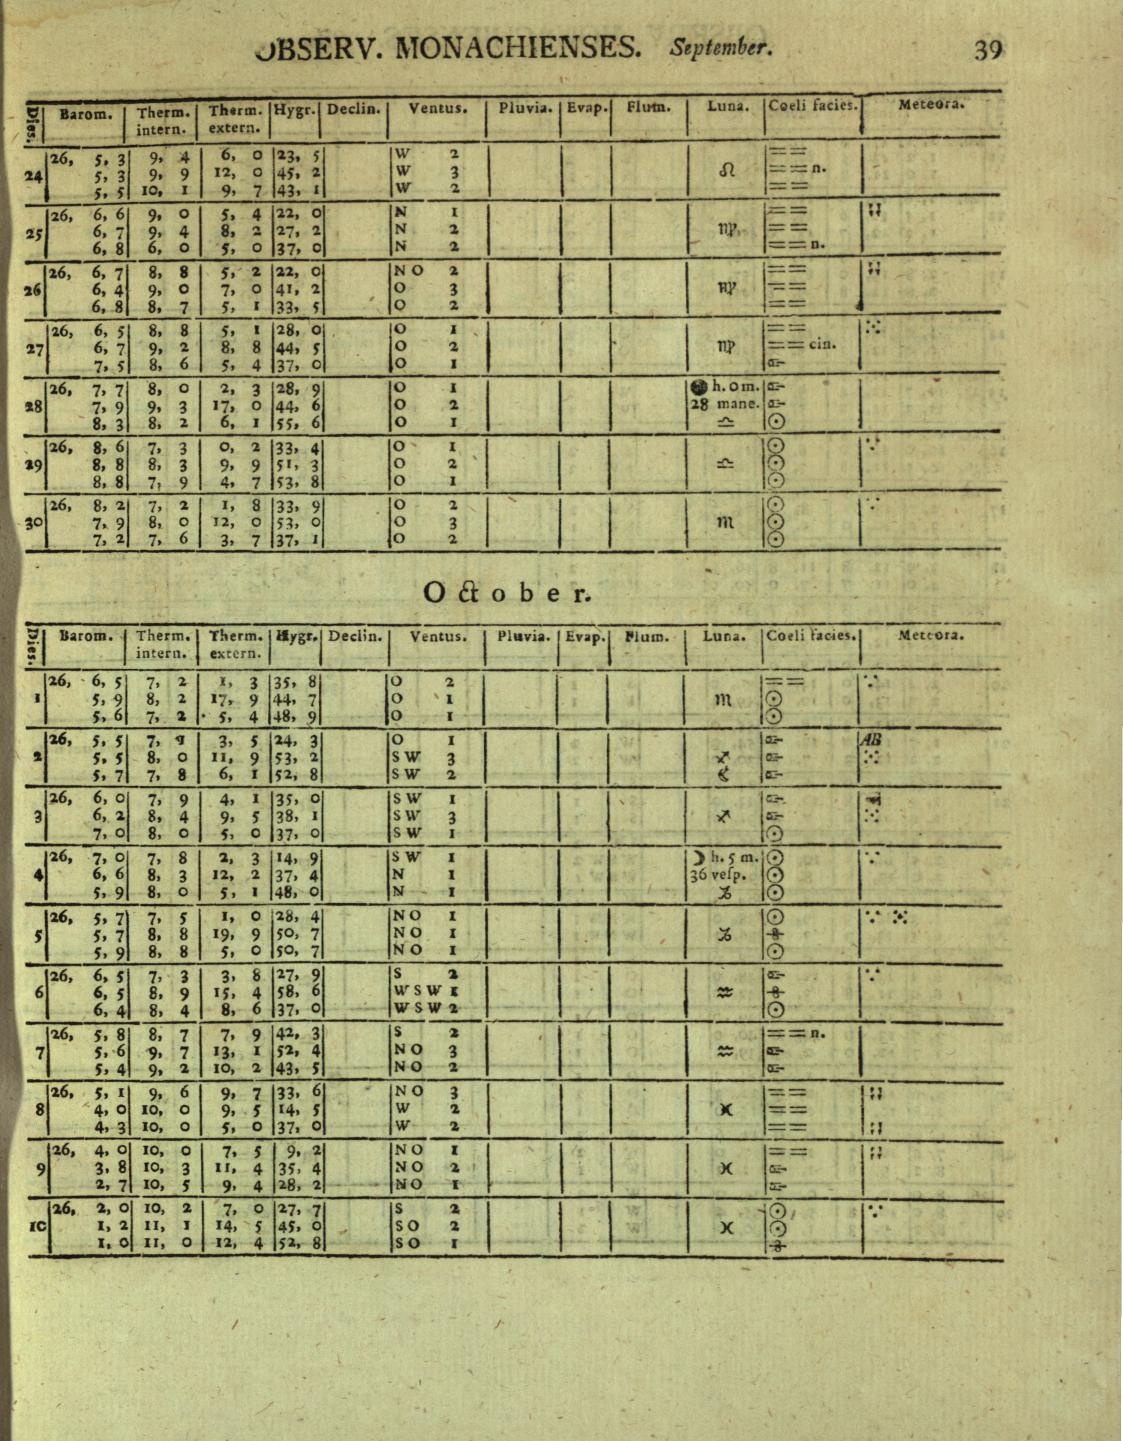 OBSERV. MONACHIENSES. September. 39
Dies. Barom. Therm. intern. Therm. extern. Hygr. Declin. Ventus. Pluvia. Evap. Flum. Luna. Coeli facies. Meteora.
26, 5, 3 9, 4 6, 0 23, 5 W 2 ==
24 5, 3 9, 9 12, 0 45, 2 W 3 ♌ == n.
5, 5 10, 1 9, 7 43, 1 W 2 ==
26, 6, 6 9, 0 5, 4 22, 0 N 1 ==
25 6, 7 9, 4 8, 2 27, 2 N 2 ♍ ==
6, 8 6, 0 5, 0 37, 0 N 2 == n.
26, 6, 7 8, 8 5, 2 22, 0 N O 2 ==
26 6, 4 9, 0 7, 0 41, 2 O 3 ♍ ==
6, 8 8, 7 5, 1 33, 5 O 2 ==
26, 6, 5 8, 8 5, 1 28, 0 O 1 ==
27 6, 7 9, 2 8, 8 44, 5 O 2 ♍ == cin.
7, 5 8, 6 5, 4 37, 0 O 1
26, 7, 7 8, 0 2, 3 28, 9 O 1 ● h. 0 m.
28 7, 9 9, 3 17, 0 44, 6 O 2 28 mane.
8, 3 8, 2 6, 1 55, 6 O 1 ♎ ☉
26, 8, 6 7, 3 0, 2 33, 4 O 1 ☉ ∵
29 8, 8 8, 3 9, 9 51, 3 O 2 ♎ ☉
8, 8 7, 9 4, 7 53, 8 O 1 ☉
26, 8, 2 7, 2 1, 8 33, 9 O 2 ☉ ∵
30 7, 9 8, 0 12, 0 53, 0 O 3 ♏ ☉
7, 2 7, 6 3, 7 37, 1 O 2 ☉
October.
Dies. Barom. Therm. intern. Therm. extern. Hygr. Declin. Ventus. Pluvia. Evap. Flum. Luna. Coeli facies. Meteora.
26, 6, 5 7, 2 1, 3 35, 8 O 2 == ∵
1 5, 9 8, 2 17, 9 44, 7 O 1 ♏ ☉
5, 6 7, 2 5, 4 48, 9 O 1 ☉
26, 5, 5 7, 3, 5 24, 3 O 1 AB
2 5, 5 8, 0 11, 9 53, 2 S W 3 ♐
5, 7 7, 8 6, 1 52, 8 S W 2
26, 6, 0 7, 9 4, 1 35, 0 S W 1
3 6, 2 8, 4 9, 5 38, 1 S W 3 ♐
7, 0 8, 0 5, 0 37, 0 S W 1 ☉
26, 7, 0 7, 8 2, 3 14, 9 S W 1 ☽ h. 5 m. ☉ ∵
4 6, 6 8, 3 12, 2 37, 4 N 1 36 vesp. ☉
5, 9 8, 0 5, 1 48, 0 N 1 ♑ ☉
26, 5, 7 7, 5 1, 0 28, 4 N O 1 ☉ ∵
5 5, 7 8, 8 19, 9 50, 7 N O 1 ♑
5, 9 8, 8 5, 0 50, 7 N O 1 ☉
26, 6, 5 7, 3 3, 8 27, 9 S 2 ∵
6 6, 5 8, 9 15, 4 58, 6 W S W 1 ♒
6, 4 8, 4 8, 6 37, 0 W S W 2 ☉
26, 5, 8 8, 7 7, 9 42, 3 S 2 == n.
7 5, 6 9, 7 13, 1 52, 4 N O 3 ♒
5, 4 9, 2 10, 2 43, 5 N O 2
26, 5, 1 9, 6 9, 7 33, 6 N O 3 ==
8 4, 0 10, 0 9, 5 14, 5 W 2 ♓ ==
4, 3 10, 0 5, 0 37, 0 W 2 ==
26, 4, 0 10, 0 7, 5 9, 2 N O 1 ==
9 3, 8 10, 3 11, 4 35, 4 N O 2 ♓
2, 7 10, 5 9, 4 28, 2 N O 1
26, 2, 0 10, 2 7, 0 27, 7 S 2 ☉ ∵
10 1, 2 11, 1 14, 5 45, 0 S O 2 ♓ ☉
1, 0 11, 0 12, 4 52, 8 S O 1